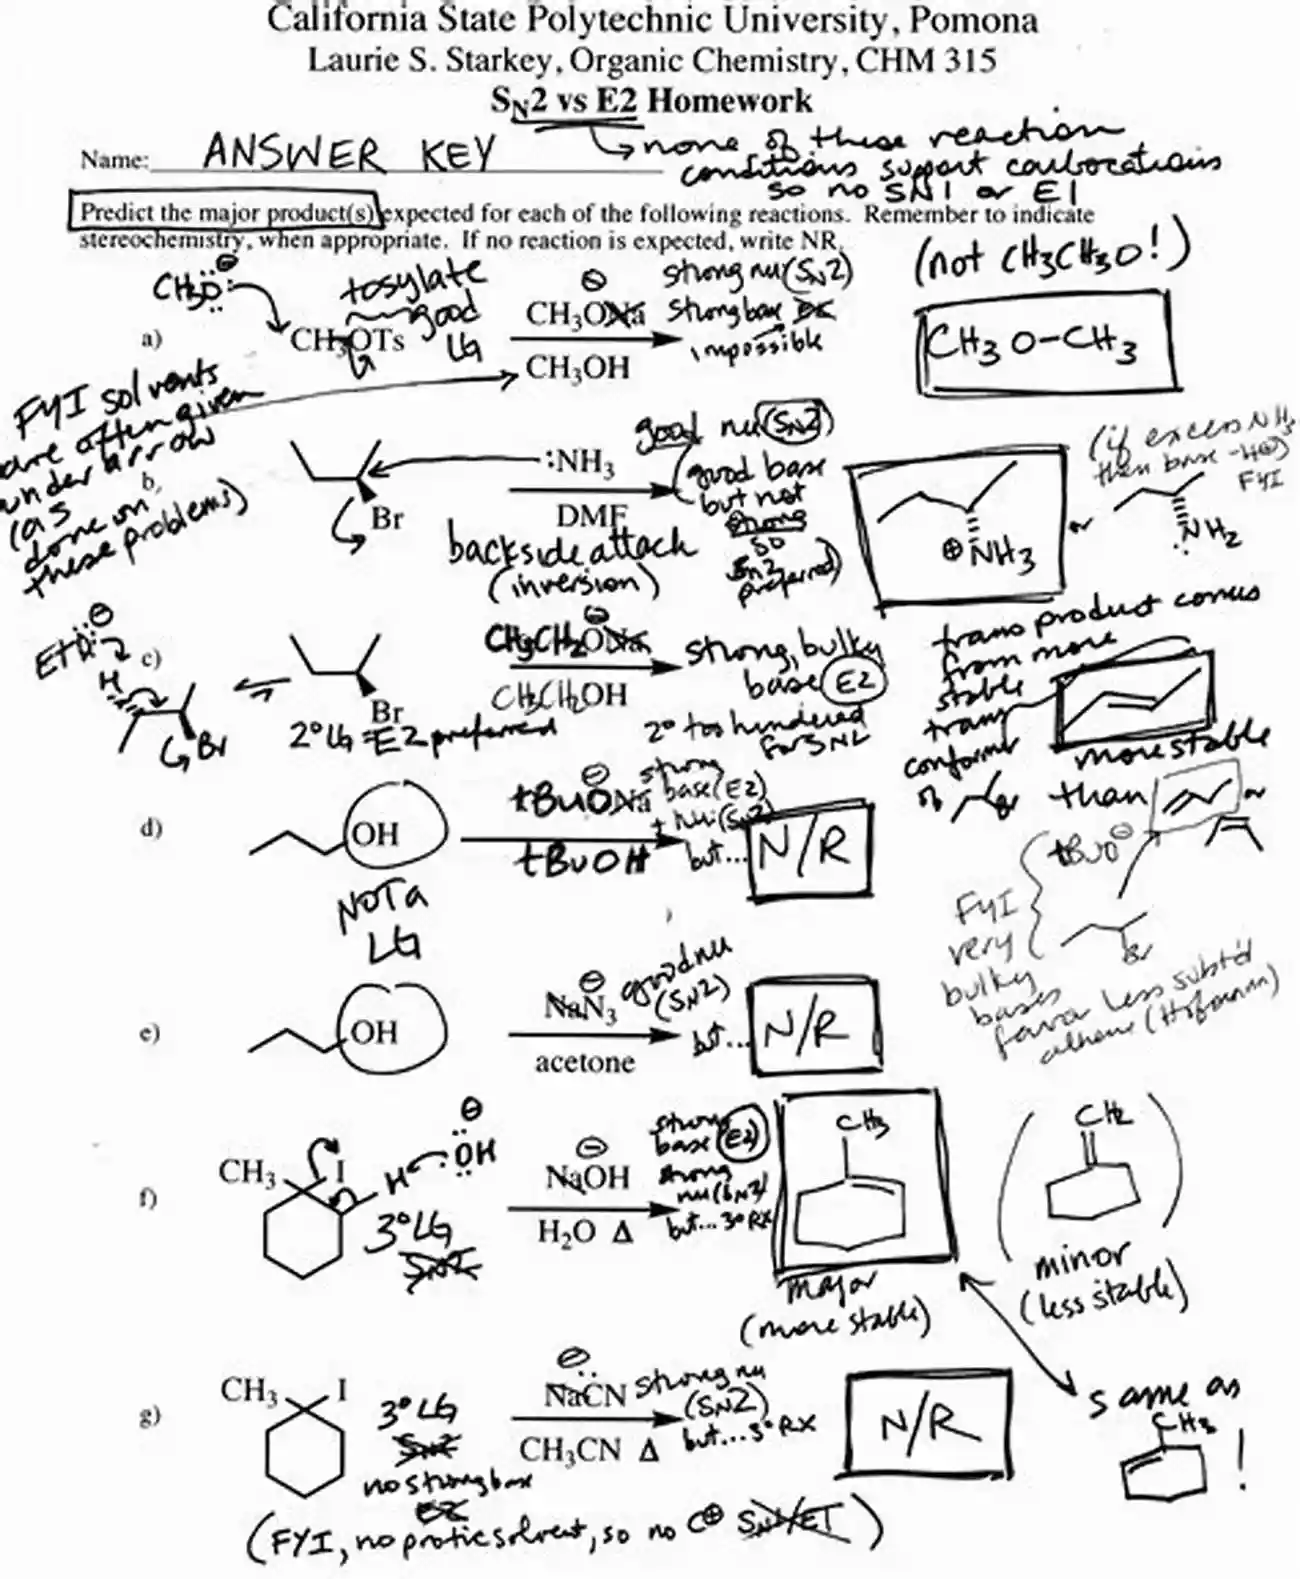 California State Polytechnic University, Pomona
Laurie S. Starkey, Organic Chemistry, CHM 315
SN2 vs E2 Homework
Name: ANSWER KEY
none of these reaction
conditions support carbocations
so no SN1 or E1
Predict the major product(s) expected for each of the following reactions. Remember to indicate
stereochemistry, when appropriate. If no reaction is expected, write NR.
(not CH3CH3O!)
CH3O:⊖
tosylate
good
LG
a)
CH3OTs
⊖
CH3ONa
CH3OH
strong nu (SN2)
strong base E2
impossible
CH3O-CH3
FYI solvents
are often given
under arrow
(as
done on
these problems)
b)
Br
:NH3
DMF
backside attack
(inversion)
good nu (SN2)
(good base
but not
strong
so
SN2
preferred)
⊕NH3
or
(if excess NH3
then base -H⊕)
FYI
NH2
c)
EtO:⊖
H
Br
Br
2° LG = E2 preferred
⊖
CH3CH2ONa
CH3CH2OH
strong, bulky
base (E2)
2° too hindered
for SN2
trans product comes
from more
stable
trans
conformer
of
Br
more stable
than
or
d)
OH
NOT a
LG
⊖
tBuONa
tBuOH
strong
base (E2)
+ nu: (SN2)
but...
N/R
tBuO⊖
Br
FYI
very
bulky
bases
favor less subst'd
alkene (Hofmann)
e)
OH
⊖
NaN3
acetone
good nu
(SN2)
but...
N/R
f)
CH3
I
H
⊖
:OH
3° LG
SN2
⊖
NaOH
H2O Δ
strong
base (E2)
strong
nu (SN2)
but... 3° RX
CH3
major
(more stable)
CH2
minor
(less stable)
g)
CH3
I
3° LG
SN2
no strong base
E2
⊖
NaCN
CH3CN Δ
strong nu
(SN2)
but... 3° RX
N/R
same as
CH3
!
(FYI, no protic solvent, so no C⊕ SN1/E1)